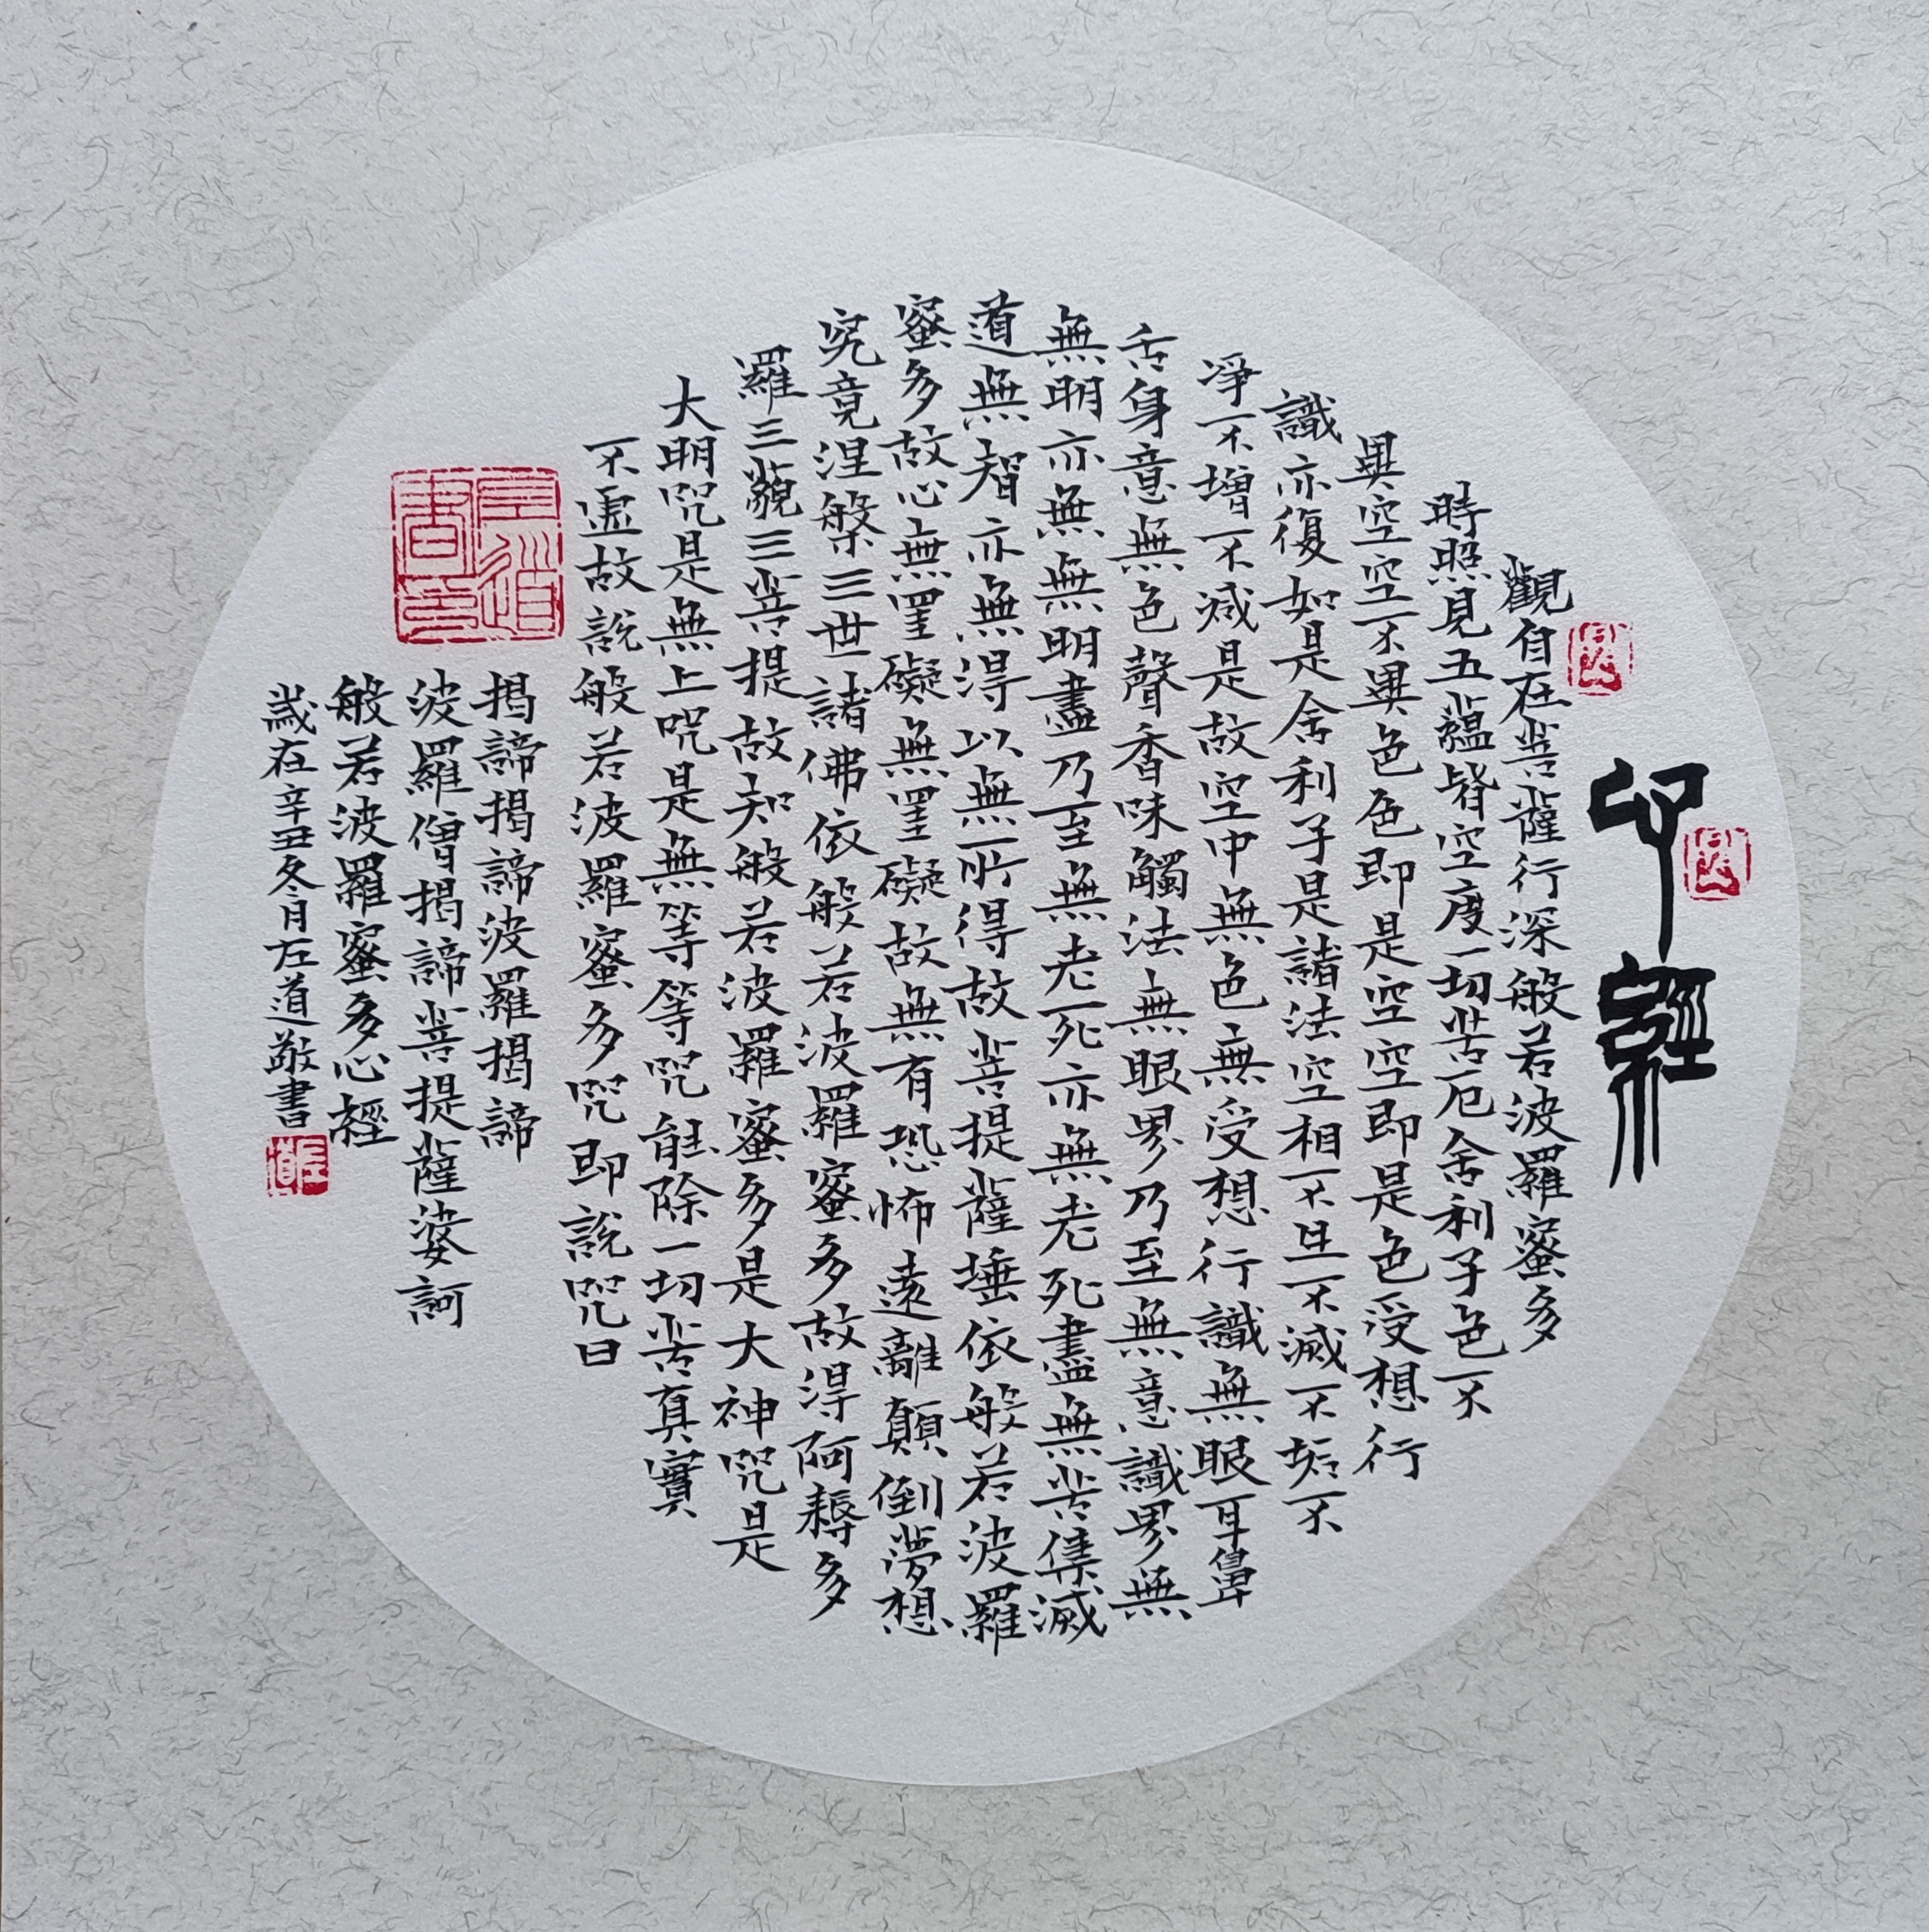 心經
觀自在菩薩行深般若波羅蜜多
時照見五蘊皆空度一切苦厄舍利子色不
異空空不異色色即是空空即是色受想行
識亦復如是舍利子是諸法空相不生不滅不垢不
凈不增不減是故空中無色無受想行識無眼耳鼻
舌身意無色聲香味觸法無眼界乃至無意識界無
無明亦無無明盡乃至無老死亦無老死盡無苦集滅
道無智亦無得以無所得故菩提薩埵依般若波羅
蜜多故心無罣礙無罣礙故無有恐怖遠離顛倒夢想
究竟涅槃三世諸佛依般若波羅蜜多故得阿耨多
羅三藐三菩提故知般若波羅蜜多是大神咒是
大明咒是無上咒是無等等咒能除一切苦真實
不虛故說般若波羅蜜多咒即說咒曰
揭諦揭諦波羅揭諦
波羅僧揭諦菩提薩婆訶
般若波羅蜜多心經
歲在辛丑冬月左道敬書
左道書印
左道